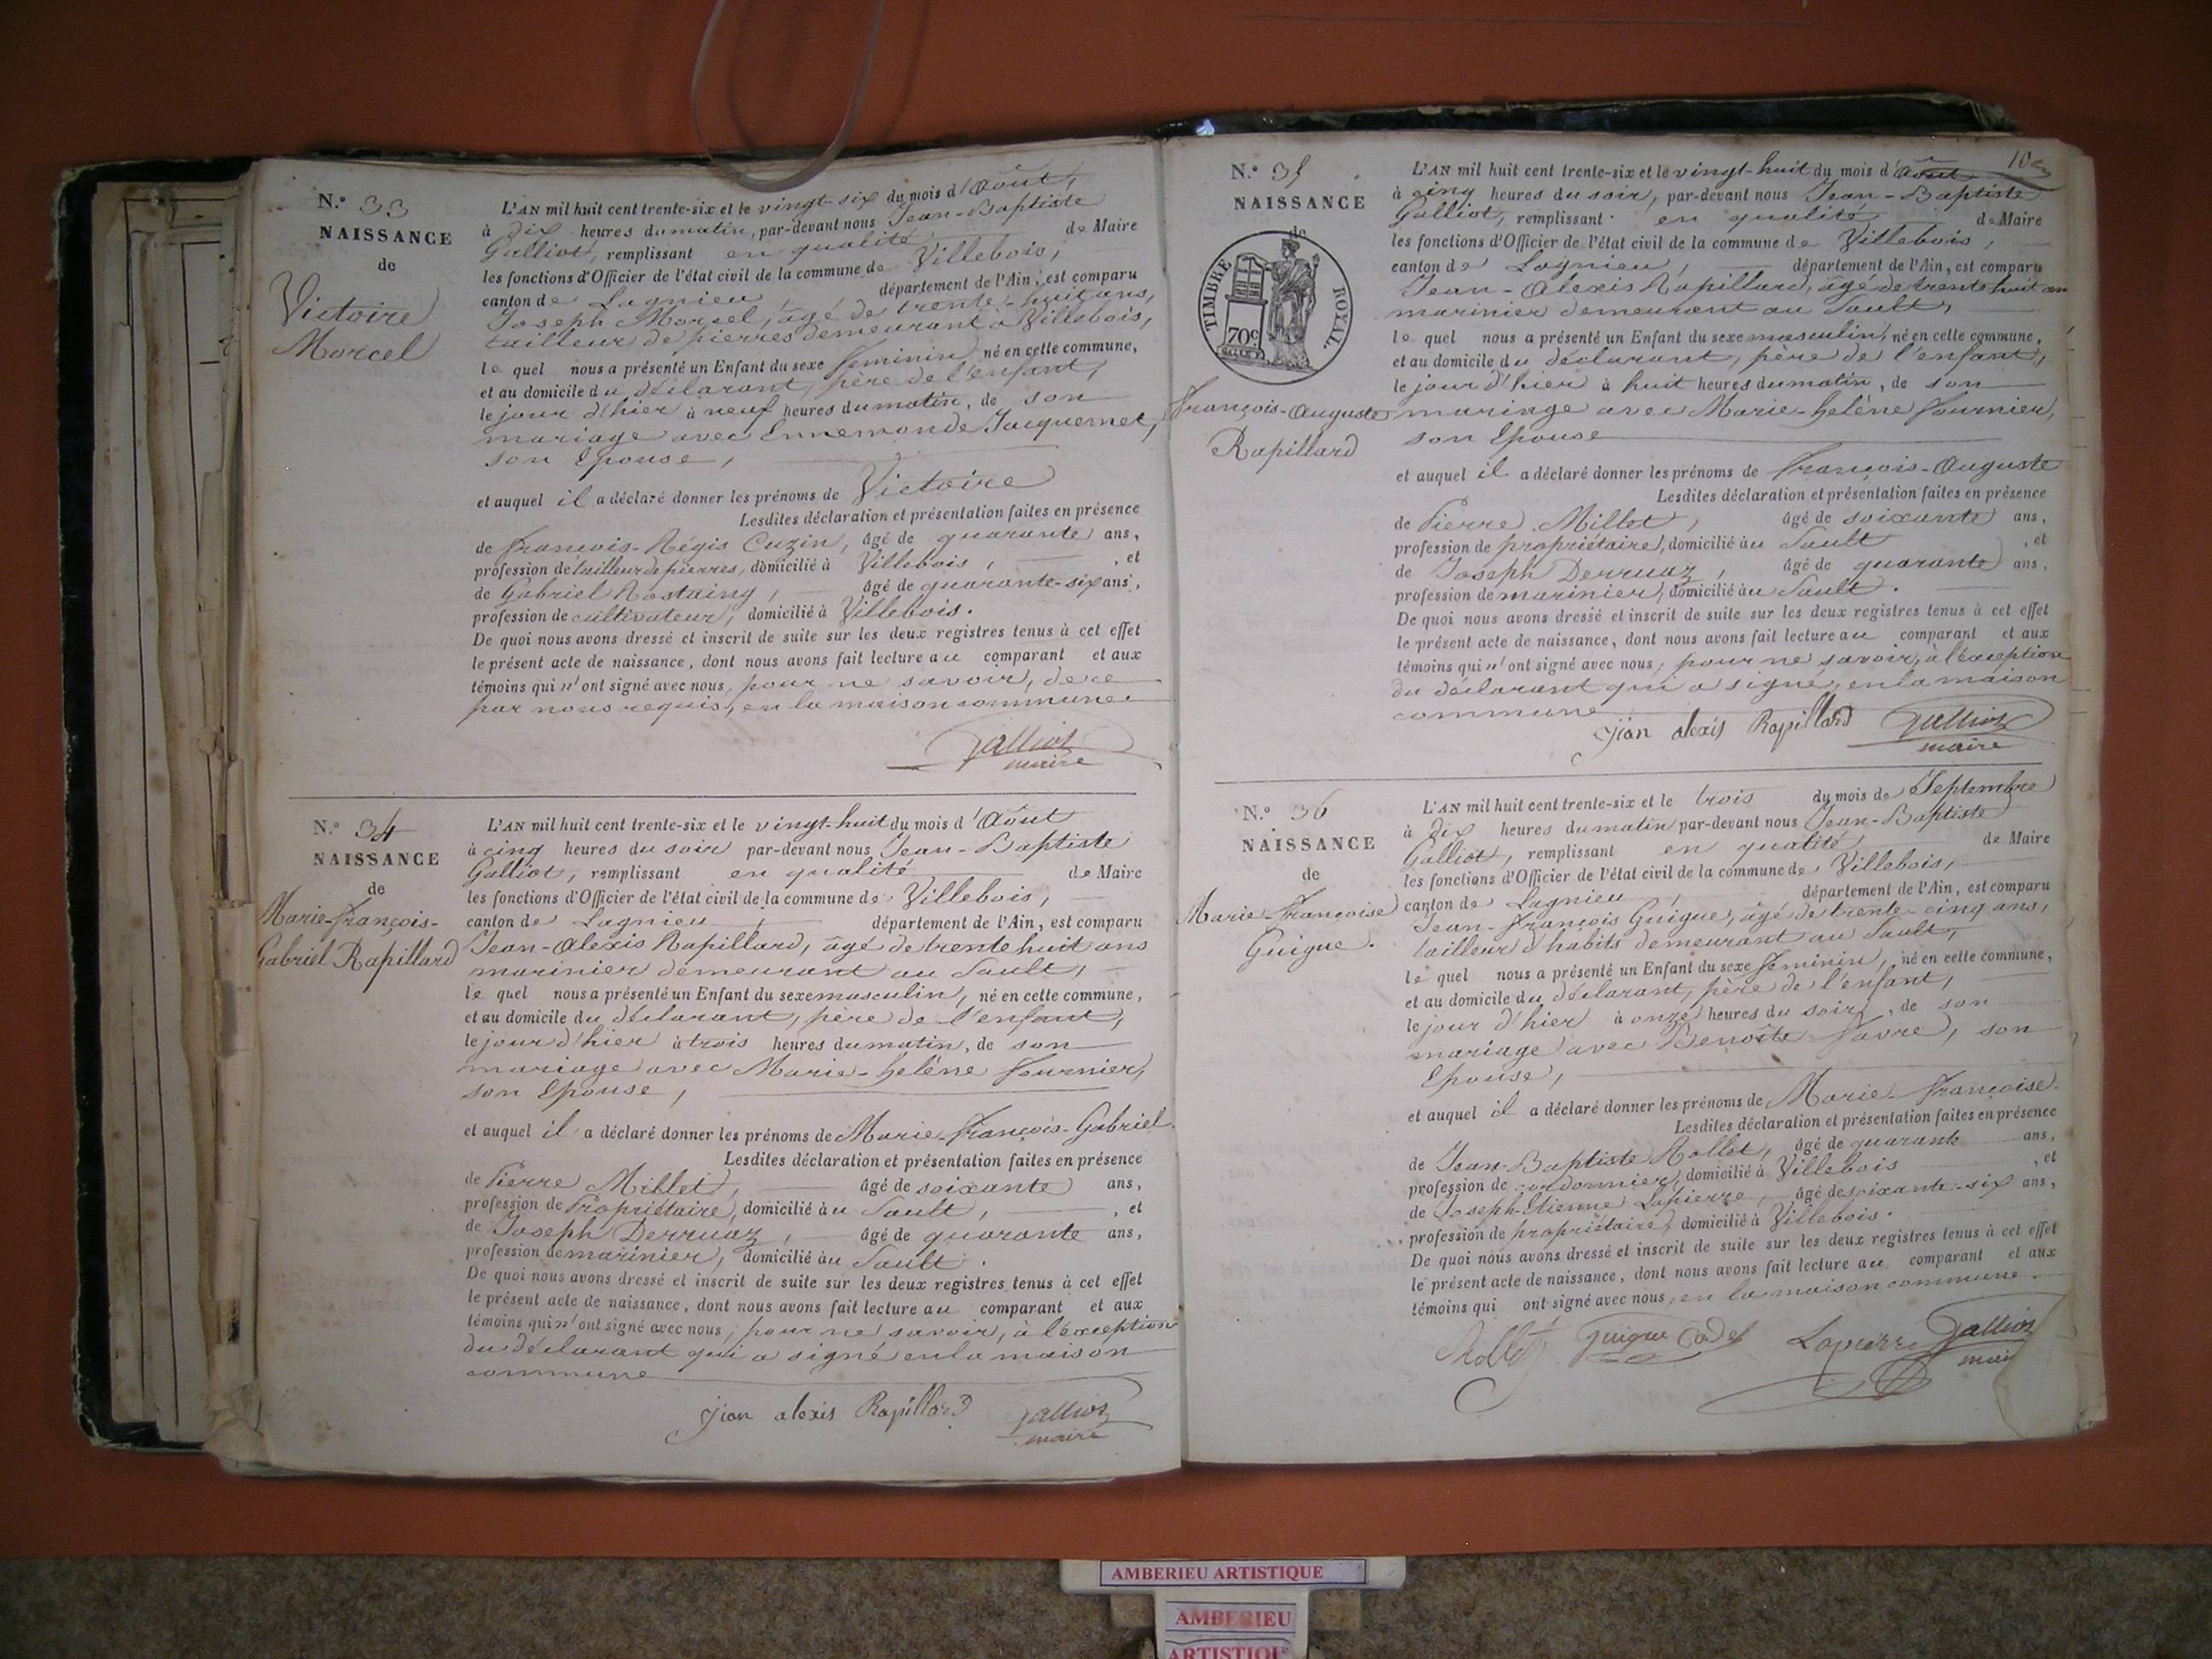 N.º 33
NAISSANCE
de
Victoire
Morcel
L'AN mil huit cent trente-six et le vingt-six du mois d'Août,
à dix heures du matin, par-devant nous Jean-Baptiste
Galliot, remplissant en qualité de Maire
les fonctions d'Officier de l'état civil de la commune de Villebois,
canton de Lagnieu, département de l'Ain, est comparu
Joseph Morcel, âgé de trente-huit ans,
tailleur de pierres demeurant à Villebois,
le quel nous a présenté un Enfant du sexe féminin, né en cette commune,
et au domicile du déclarant, père de l'enfant,
le jour d'hier à neuf heures du matin, de son
mariage avec Ennemonde Jacquemet,
son Epouse,
et auquel il a déclaré donner les prénoms de Victoire
Lesdites déclaration et présentation faites en présence
de François-Régis Cuzin, âgé de quarante ans,
profession de tailleur de pierres, domicilié à Villebois, , et
de Gabriel Rostaing, âgé de quarante-six ans,
profession de cultivateur, domicilié à Villebois.
De quoi nous avons dressé et inscrit de suite sur les deux registres tenus à cet effet
le présent acte de naissance, dont nous avons fait lecture au comparant et aux
témoins qui n'ont signé avec nous, pour ne savoir, de ce
par nous requis, en la maison commune.
Galliot
maire
N.º 34
NAISSANCE
de
Marie-François-
Gabriel Rapillard
L'AN mil huit cent trente-six et le vingt-huit du mois d'Août
à cinq heures du soir par-devant nous Jean-Baptiste
Galliot, remplissant en qualité de Maire
les fonctions d'Officier de l'état civil de la commune de Villebois,
canton de Lagnieu, département de l'Ain, est comparu
Jean-Alexis Rapillard, âgé de trente huit ans
marinier demeurant au Sault,
le quel nous a présenté un Enfant du sexe masculin, né en cette commune,
et au domicile du déclarant, père de l'enfant,
le jour d'hier à trois heures du matin, de son
mariage avec Marie-helène fournier,
son Epouse,
et auquel il a déclaré donner les prénoms de Marie-François-Gabriel.
Lesdites déclaration et présentation faites en présence
de Pierre Millet, âgé de soixante ans,
profession de Propriétaire, domicilié au Sault, , et
de Joseph Derruaz, âgé de quarante ans,
profession de marinier, domicilié au Sault.
De quoi nous avons dressé et inscrit de suite sur les deux registres tenus à cet effet
le présent acte de naissance, dont nous avons fait lecture au comparant et aux
témoins qui n'ont signé avec nous, pour ne savoir, à l'exception
du déclarant qui a signé en la maison
commune
jian alexis Rapillard Galliot
maire
10
N.º 35
NAISSANCE
de
TIMBRE ROYAL
70c
François-Auguste
Rapillard
L'AN mil huit cent trente-six et le vingt-huit du mois d'Août
à cinq heures du soir, par-devant nous Jean-Baptiste
Galliot, remplissant en qualité de Maire
les fonctions d'Officier de l'état civil de la commune de Villebois,
canton de Lagnieu, département de l'Ain, est comparu
Jean-Alexis Rapillard, âgé de trente huit ans
marinier demeurant au Sault,
le quel nous a présenté un Enfant du sexe masculin, né en cette commune,
et au domicile du déclarant, père de l'enfant,
le jour d'hier à huit heures du matin, de son
mariage avec Marie-helène fournier,
son Epouse
et auquel il a déclaré donner les prénoms de François-Auguste
Lesdites déclaration et présentation faites en présence
de Pierre Millet, âgé de soixante ans,
profession de propriétaire, domicilié au Sault , et
de Joseph Derruaz, âgé de quarante ans,
profession de marinier, domicilié au Sault.
De quoi nous avons dressé et inscrit de suite sur les deux registres tenus à cet effet
le présent acte de naissance, dont nous avons fait lecture au comparant et aux
témoins qui n'ont signé avec nous, pour ne savoir, à l'exception
du déclarant qui a signé, en la maison
commune
jian alexis Rapillard Galliot
maire
N.º 36
NAISSANCE
de
Marie-Françoise
Guigue.
L'AN mil huit cent trente-six et le trois du mois de Septembre
à dix heures du matin par-devant nous Jean-Baptiste
Galliot, remplissant en qualité de Maire
les fonctions d'Officier de l'état civil de la commune de Villebois,
canton de Lagnieu, département de l'Ain, est comparu
Jean-François Guigue, âgé de trente-cinq ans,
tailleur d'habits demeurant au Sault,
le quel nous a présenté un Enfant du sexe féminin, né en cette commune,
et au domicile du déclarant, père de l'enfant,
le jour d'hier à onze heures du soir, de son
mariage avec Benoîte favre, son
Epouse,
et auquel il a déclaré donner les prénoms de Marie-Françoise.
Lesdites déclaration et présentation faites en présence
de Jean-Baptiste Rollet, âgé de quarante ans,
profession de cordonnier, domicilié à Villebois , et
de Joseph-Etienne Lapierre, âgé de soixante-six ans,
profession de propriétaire, domicilié à Villebois.
De quoi nous avons dressé et inscrit de suite sur les deux registres tenus à cet effet
le présent acte de naissance, dont nous avons fait lecture au comparant et aux
témoins qui ont signé avec nous, en la maison commune.
Rollet Guigue Cadet Lapierre Galliot
maire
AMBERIEU ARTISTIQUE
AMBERIEU
ARTISTIQUE